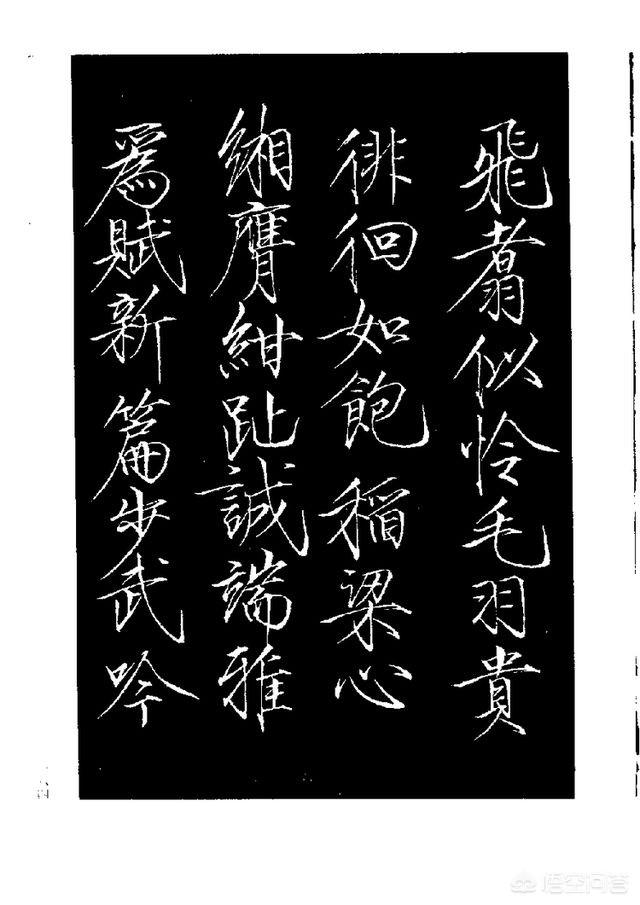 飛翥似怜毛羽貴
徘徊如飽稻粱心
緗膺紺趾誠端雅
爲賦新篇步武吟
悟空问答